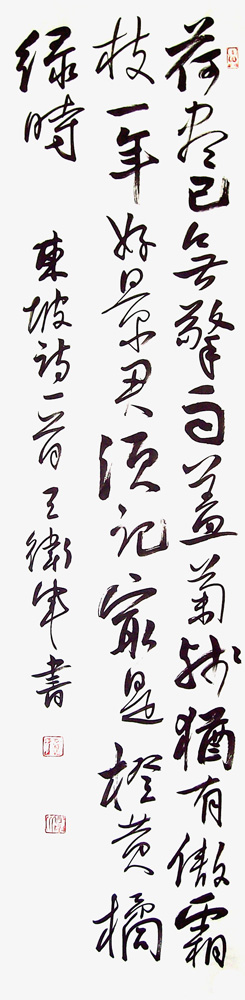 荷盡已無擎雨蓋菊殘猶有傲霜
枝一年好景君須記最是橙黄橘
緑時
東坡詩一首 王衛軍書